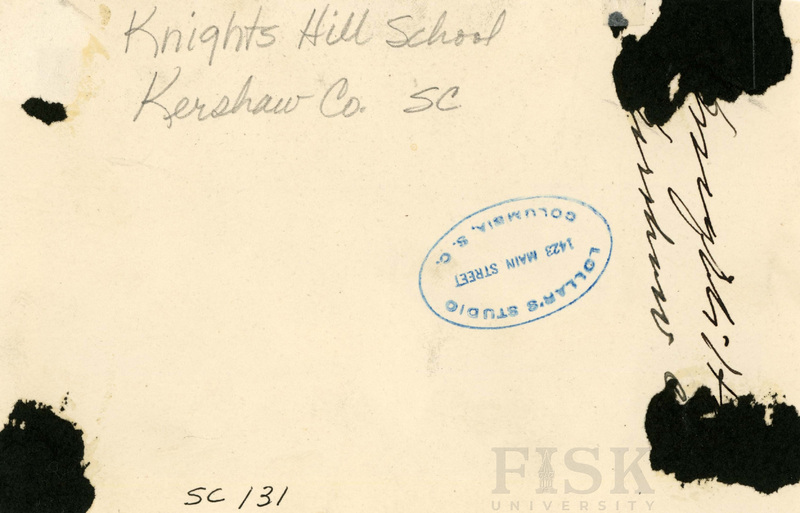 Knights Hill School
Kershaw Co. SC
LOLLAR'S STUDIO
1423 MAIN STREET
COLUMBIA, S. C.
SC 131
FISK
UNIVERSITY